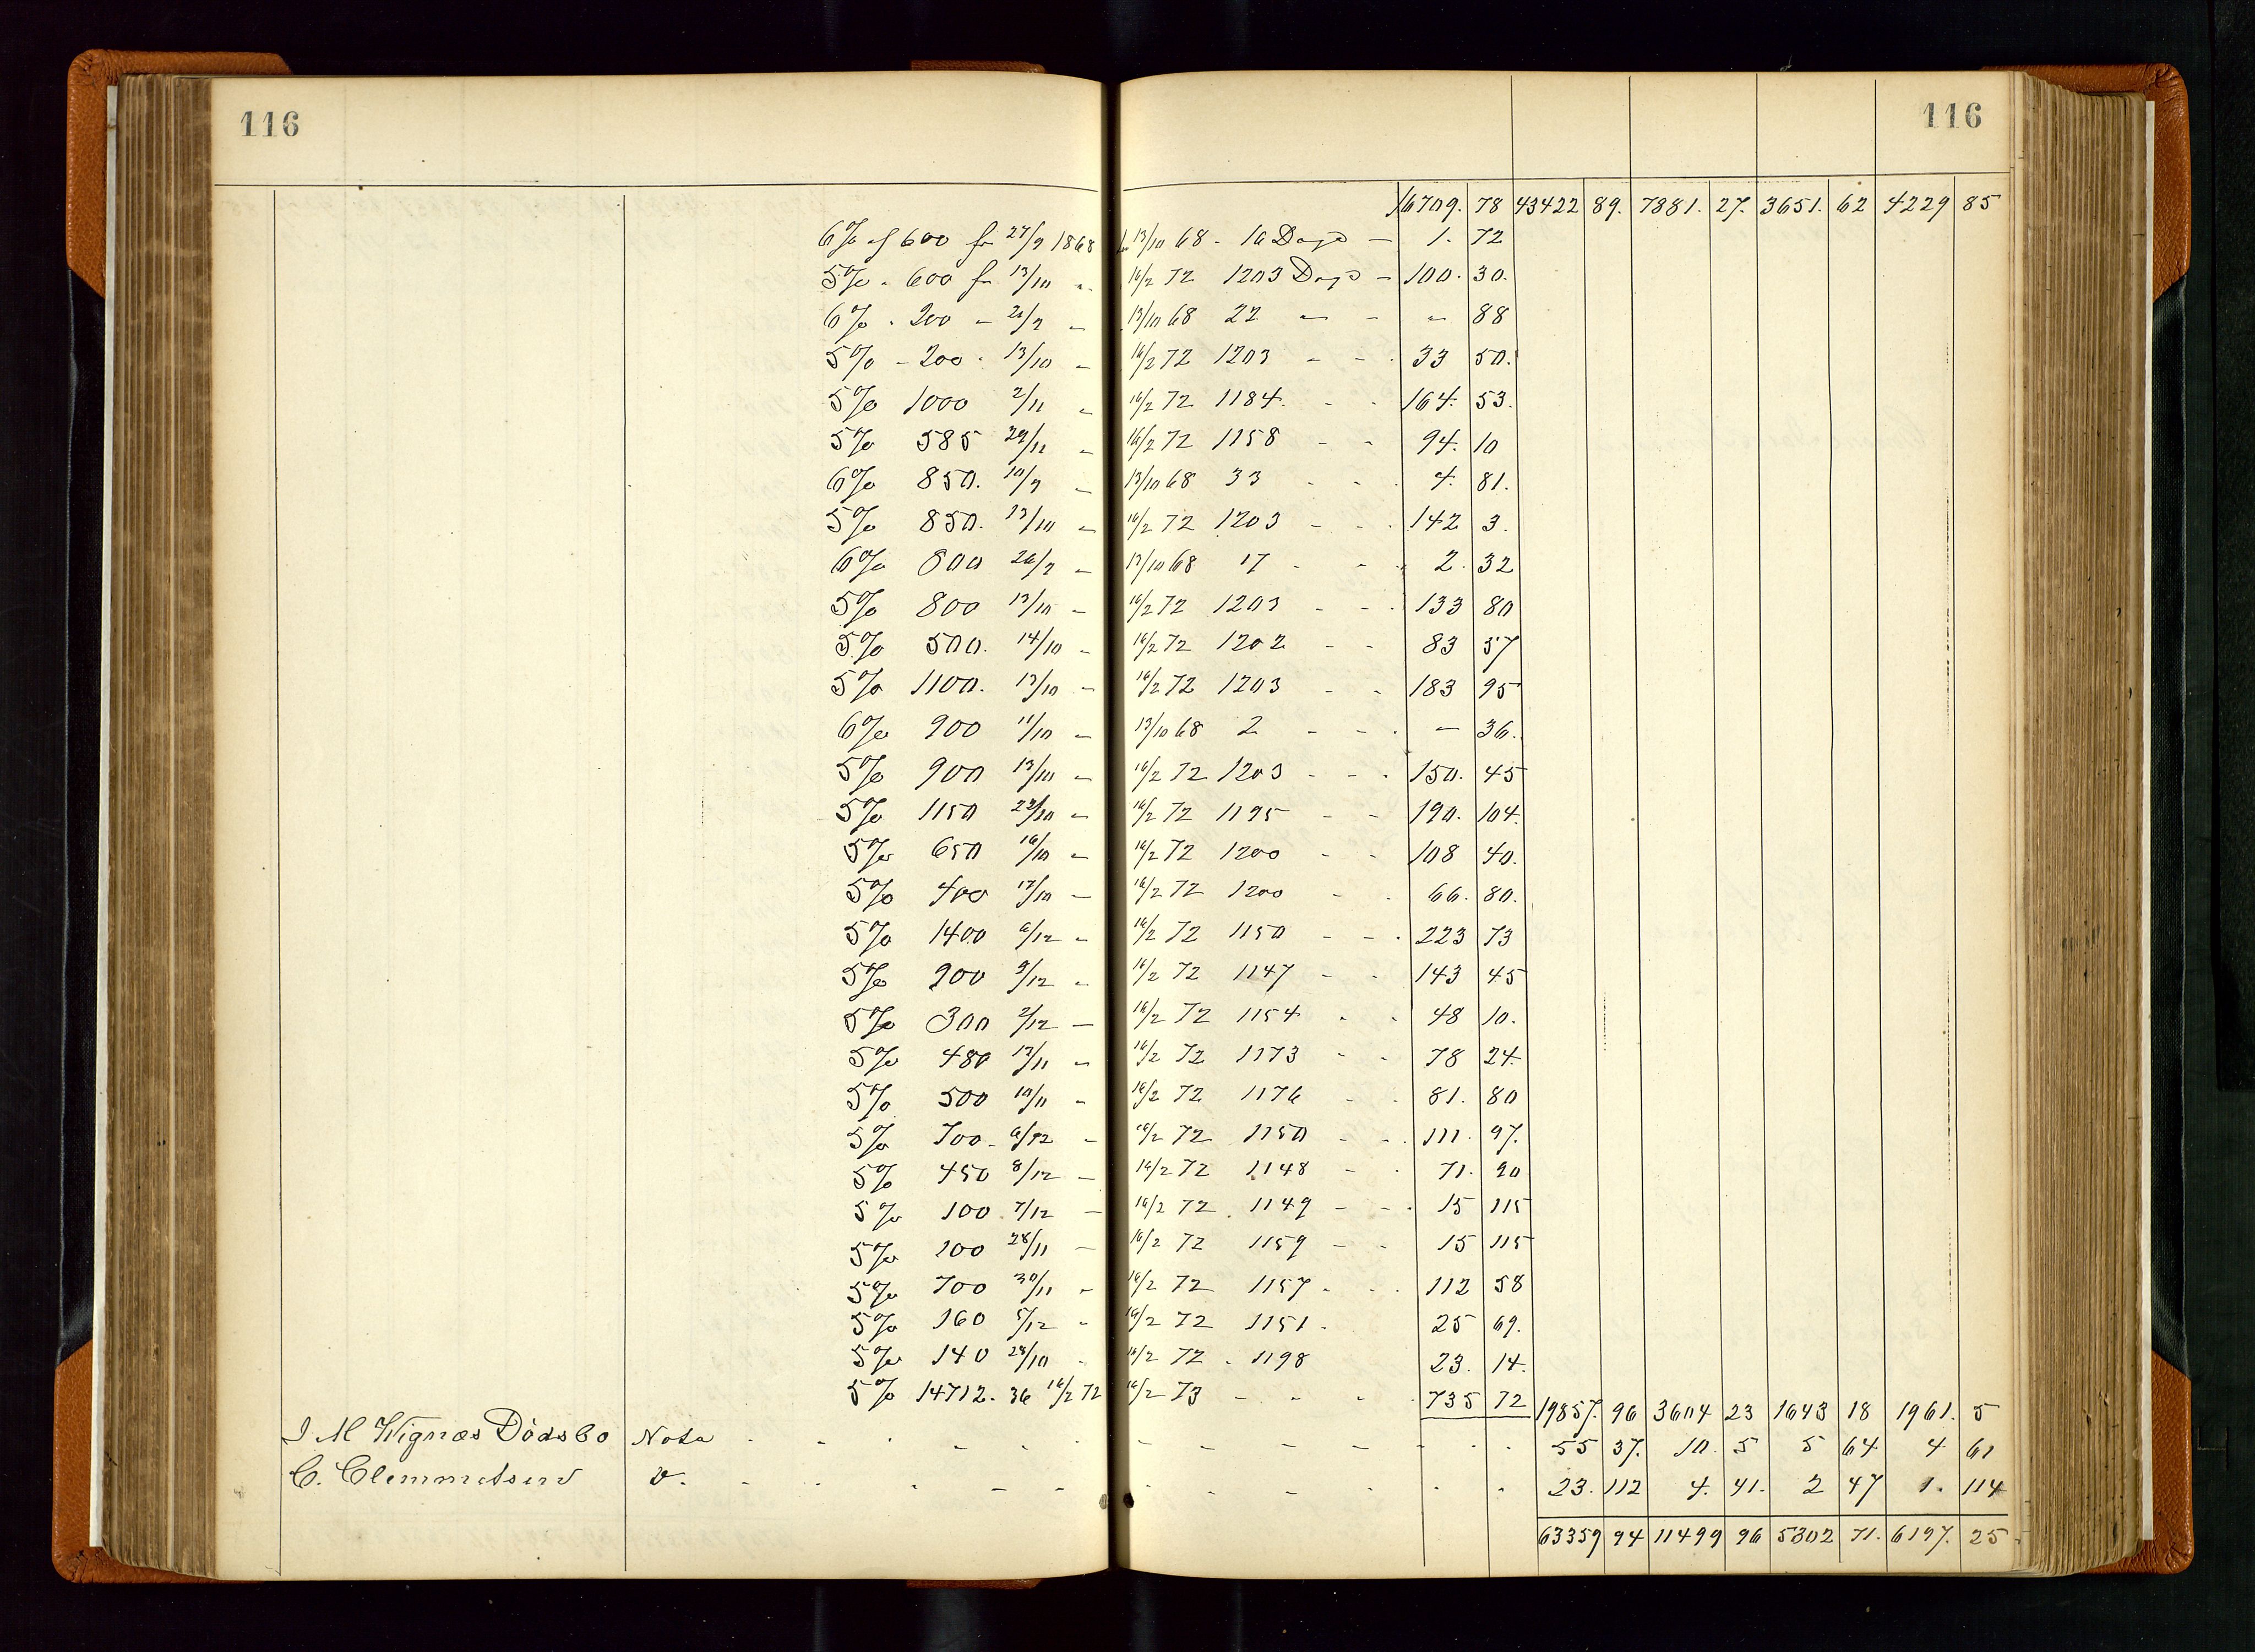 116 116
16709. 78 43422 89. 7881. 27. 3651. 62 4229 85
6% af 600 fr 27/9 1868 13/10 68 - 16 Dage - 1. 72
5% - 600 fr 13/10 - 16/2 72 1203 Dage - 100. 30.
6% - 200 - 21/9 - 13/10 68 22 - - - 88
5% - 200 - 13/10 - 16/2 72 1203 - - 33 50.
5% 1000 2/11 - 16/2 72 1184. - - 164. 53.
5% 585 29/11 - 16/2 72 1158 - - 94. 10
6% 850. 10/9 - 13/10 68 33 - - 4. 81.
5% 850. 13/10 - 16/2 72 1203 - - 142 3.
6% 800 26/9 - 13/10 68 17 - - 2. 32
5% 800 13/10 - 16/2 72 1203 - - 133 80
5% 500. 14/10 - 16/2 72 1202 - - 83 57
5% 1100. 13/10 - 16/2 72 1203 - - 183 95
6% 900 11/10 - 13/10 68 2 - - - 36.
5% 900 13/10 - 16/2 72 1203 - - 150. 45
5% 1150 - 16/2 72 1195 - - 190. 104.
5% 650 16/10 - 16/2 72 1200 - - 108 40.
5% 400 - 16/2 72 1200 - - 66. 80.
5% 1400 6/12 - 16/2 72 1150 - - 223 73
5% 900 9/12 - 16/2 72 1147 - - 143 45
5% 300 2/12 - 16/2 72 1154 - - 48 10.
5% 480 13/11 - 16/2 72 1173 - - 78 24.
5% 500 10/11 - 16/2 72 1176 - - 81. 80
5% 700 - 6/12 - 16/2 72 1150 - - 111. 97.
5% 450 8/12 - 16/2 72 1148 - - 71. 90
5% 100 7/12 - 16/2 72 1149 - - 15 115
5% 100 28/11 - 16/2 72 1159 - - 15 115
5% 700 30/11 - 16/2 72 1157 - - 112 58
5% 160 5/12 - 16/2 72 1151 - 25 69.
5% 140 - 16/2 72 - 1198 23. 14.
5% 14712. 36 16/2 72 16/2 73 - - - 735 72 19857. 96 3604 23 1643 18 1961. 5
J M Wignæs Dödsbo Nota - - - 55 37. 10. 5 5 64 4 61
C. Clemmetsen - - - 23. 112 4. 41. 2 47 1. 114
63359 94 11499 96 5302 71. 6197. 25